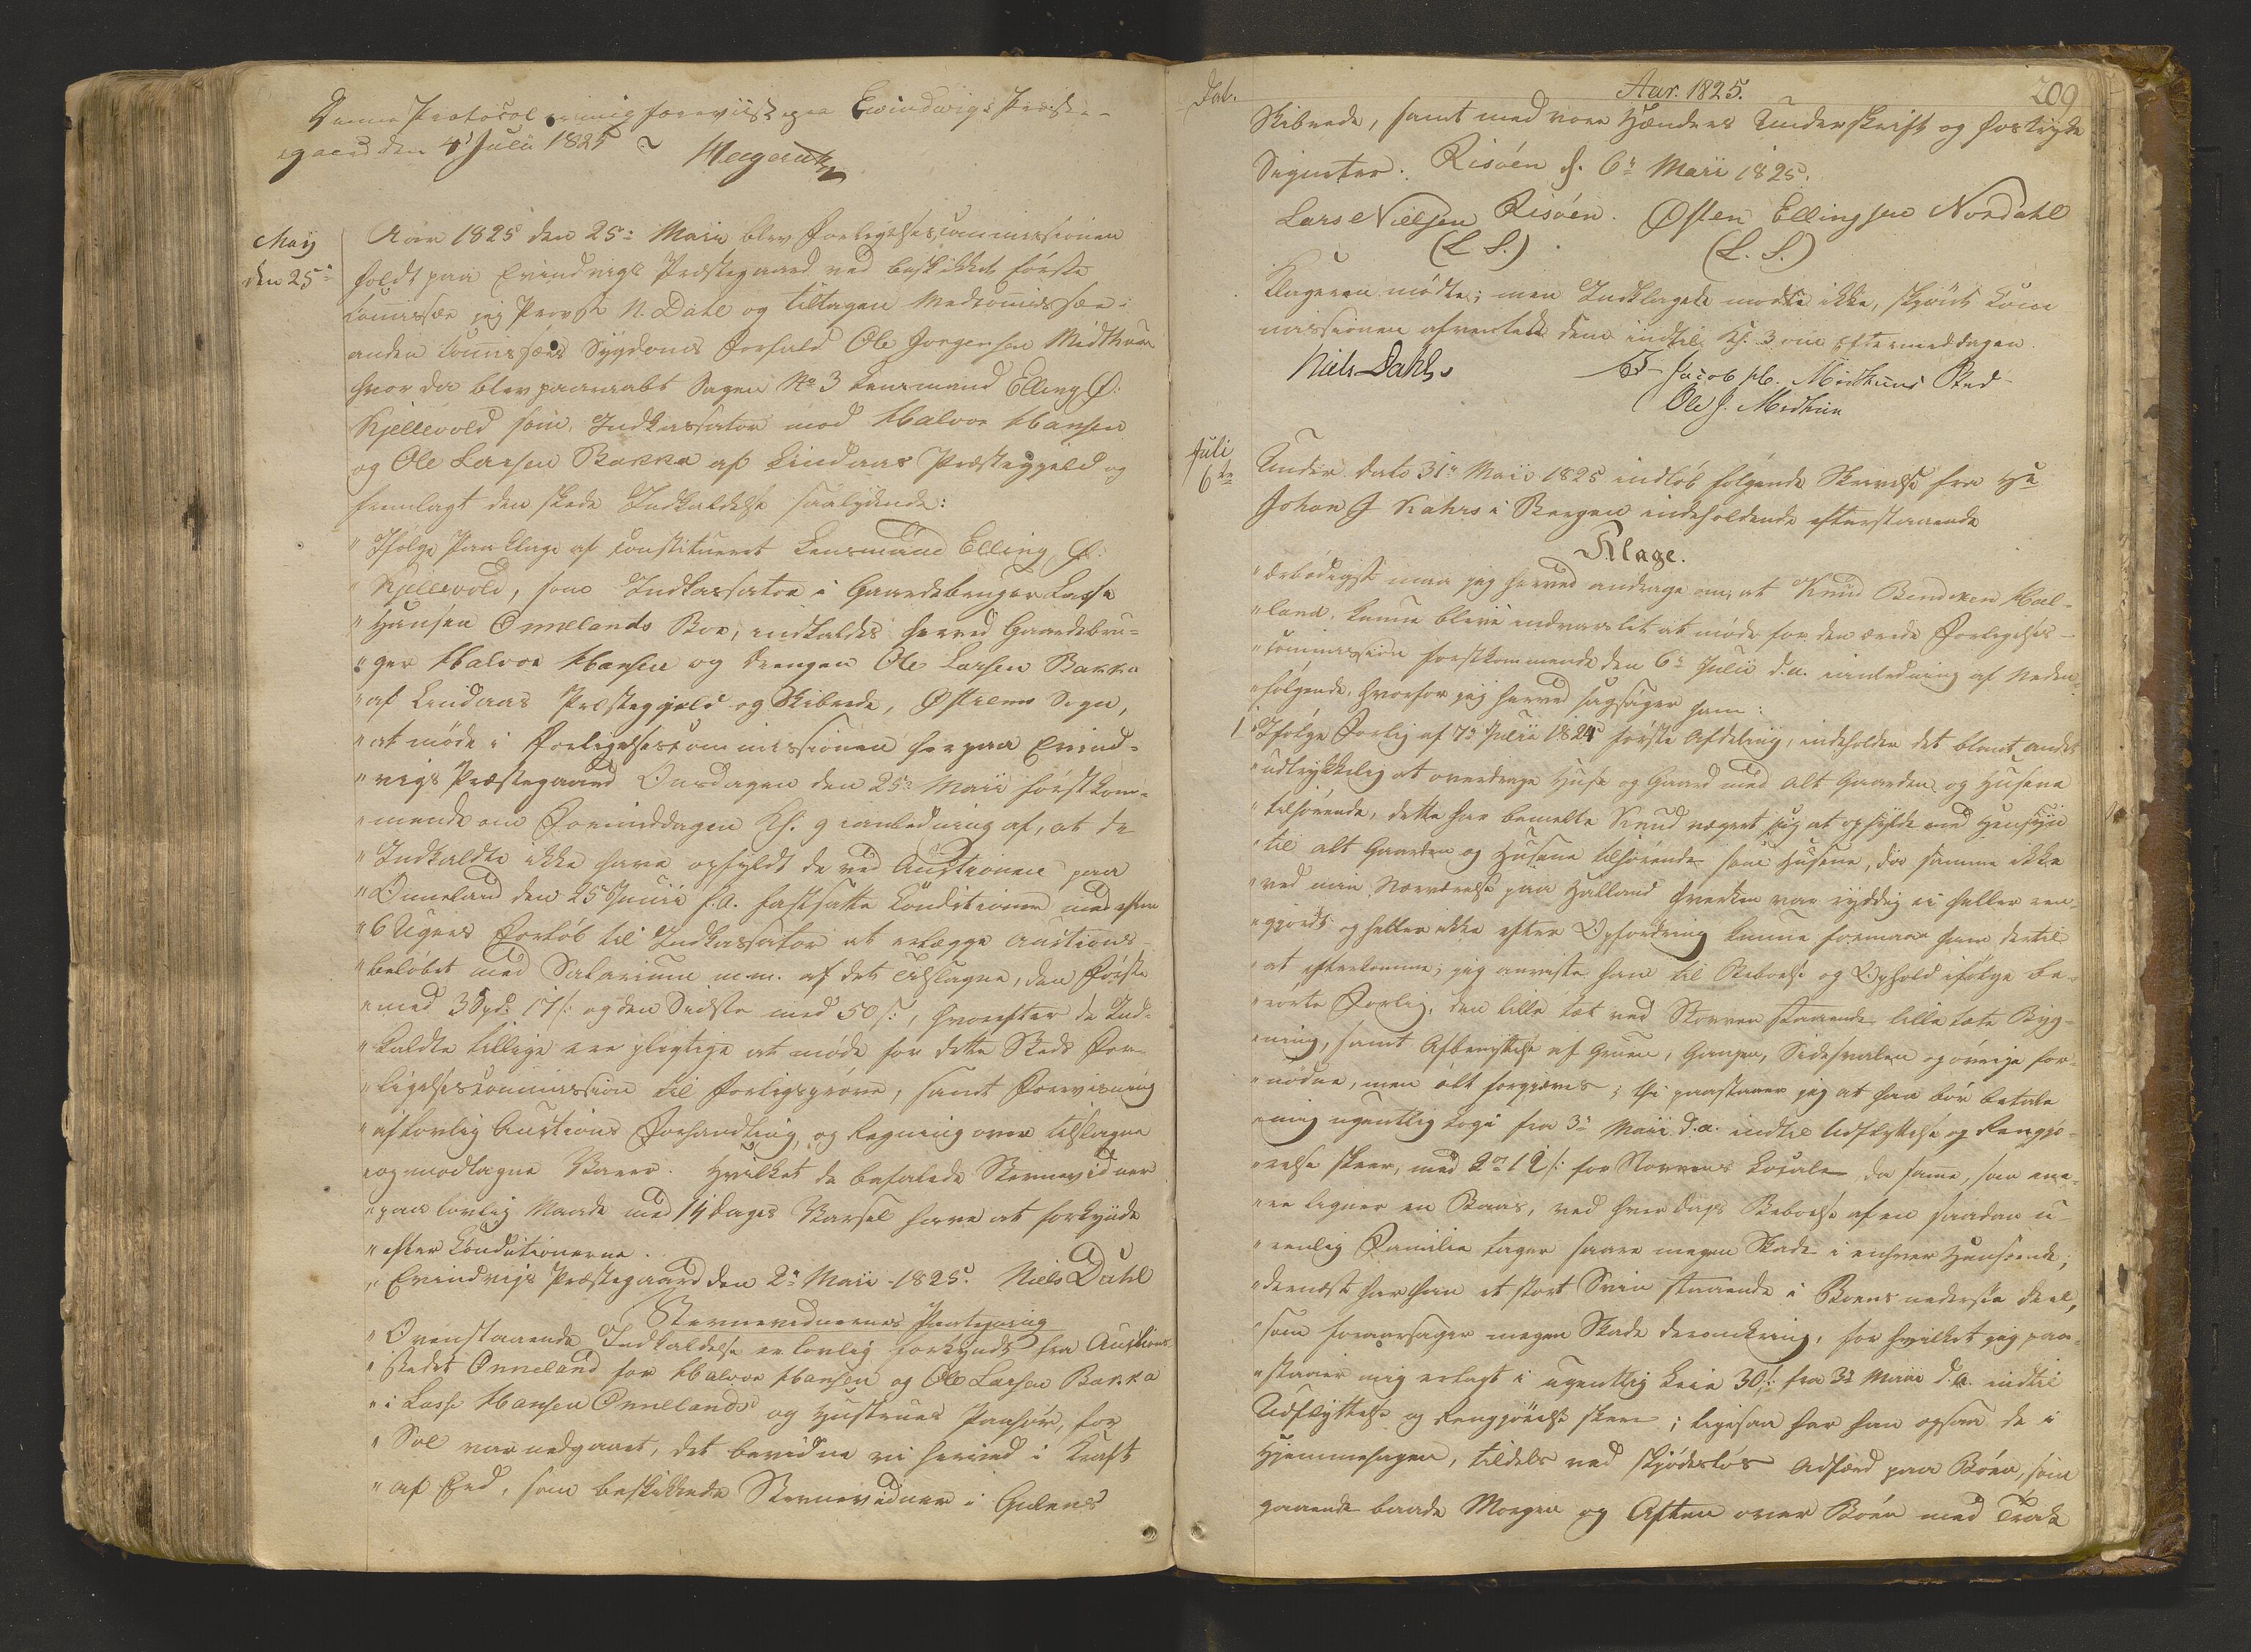 Denne Protocol er mig foreviist paa Evindvigs Præste-
gaard den 4 Juli 1825
May
den 25de
Aar 1825 den 25de Maii blev Forligelsescommissionen
holdt paa Evindvigs Præstegaard ved beskikket første
Commissær jeg Provst N. Dahl og tiltagen Medcommissær i
anden Commissærs Sygdoms Forfald Ole Jørgensen Midthun
hvor da blev paaraabt Sagen No 3 Lensmand Elling Ø:
Kjellevold som Indkassator mod Halvor Hansen
og Ole Larsen Bakka af Lindaas Præstegjeld og
fremlagt den skede Indkaldelse saalydende:
" Ifølge Paaklage af constitueret Lensmand Elling Ø:
" Kjellevold, som Indkassator i Gaardebruger Lasse
" Hansen Onnelands Boe, indkaldes herved Gaardebru-
" ger Halvor Hansen og Drengen Ole Larsen Bakka
" af Lindaas Præstegjeld og Skibrede, Østrems Sogn,
" at møde i Forligelsescommissionen her paa Evind-
" vigs Præstegaard Onsdagen den 25de Maii førstkom-
" mende om Formiddagen Kl. 9 i anledning af, at de
" Indkaldte ikke have opfyldt de ved Auctionen paa
" Onneland den 25de Junii f. A. fastsatte Conditioner med efter
" 6 Ugers Forløb til Indkassator at erlægge Auctions-
" beløbet med Salarium m.m. af det Tilslagne, den Første
" med 3 Spd: 17 s: og den Sidste med 50 s:, hvorefter de Ind-
" kaldte tillige ere pligtige at møde for dette Steds For-
" ligelsescommission til Forligsprøve, samt Forevisning
" af lovlig Auctions Forhandling og Regning over tilslagne
" og modtagne Varer. Hvilket de befalede Stevnevidner
" paa lovlig Maade med 14 dages Varsel have at forkynde
" efter Conditionerne.
" Evindvigs Præstegaard den 2de Maii 1825. Niels Dahl
Stevnevidnernes Paategning
" Ovenstaaende Indkaldelse er lovlig forkyndt fra Auctions
" stedet Onneland for Halvor Hansen og Ole Larsen Bakka
" i Lasse Hansen Onnelands og Hustrues Paahør, før
" Sol var nedgaaet, det bevidne vi herved i Kraft
" af Eed, som beskikkede Stevnevidner i Gulens
Dat.
Aar. 1825.
209
Skibrede, samt med vore Hænders Underskrift og hostrykte
Signeter. Risøen d. 6te Maii 1825.
Lars Nielsen Risøen. Østen Ellingsen Nordahl
(L. S.) (L. S.)
Klageren mødte; men Indklagede mødte ikke, skjøndt Com
missionen afventede dem indtil Kl. 3 om Eftermiddagen.
Niels Dahl
Jacob Midthuns Sted
Ole J. Midthun
Juli
6te
Under Dato 31te Maii 1825 indløb følgende Skrivelse fra Hr
Johan J Kahrs i Bergen indeholdende efterstaaende
Klage.
" Ærbødigst maa jeg herved andrage om, at Knud Bendixen Hal-
" land, kunne blive indvarslet at møde for den ærede Forligelses-
" Commission førstkommende den 6te Julii d. a. i anledning af Neden-
" følgende, hvorfor jeg herved sagsøger ham:
1 " Ifølge Forlig af 7de Julii 1824 første Afdeling, indeholder det blandt andet
" udtrykkelig at overdrage Huse og Gaard med alt Gaarden og Husene
" tilhørende, dette har bemelte Knud vægret sig at opfylde med Hensyn
" til alt Gaarden og Husene tilhørende som Husene, der samme ikke
" ved min Nærværelse paa Halland hverken var ryddig ei heller ren-
" gjordt og heller ikke efter Opfordring kunne formaae ham dertil
" at efterkomme; jeg anviste ham til Beboelse og Ophold ifølge be-
" rørte Forlig, den lille tæt ved Storren staaende lille tæte Byg-
" ning, samt Afbenyttelse af Gruen, Gangen, Sidesvalen og øvrige for-
" nødne, men alt forgjæves; thi paastaaer jeg at han bør betale
" mig ugentlig Logi fra 3de Maii d. a. indtil Udflyttelse og Rengjø-
" relse skeer, med 2 12 s: for Storrens Locale, da samme, som ene-
" re ligner en Baas, ved hver dags Beboelse af en saadan u-
" renlig Familie tager saare megen Skade i enhver Henseende;
" dernæst har han et stort Sviin staaende i Boens nederste deel,
" som foraarsager megen Skade deromkring, for hvilket jeg paa-
" staaer mig erlagt i ugentlig Leie 30 s: fra 3de Maii d. a. indtil
Udflyttelse og Rengjørelse skeer; ligesaa har han opsaa de i
Hjemmehagen, tildels ved skjødesløs Adfærd paa Bøen, som
gaaende baade Morgen og Aften over Bøen med Trak